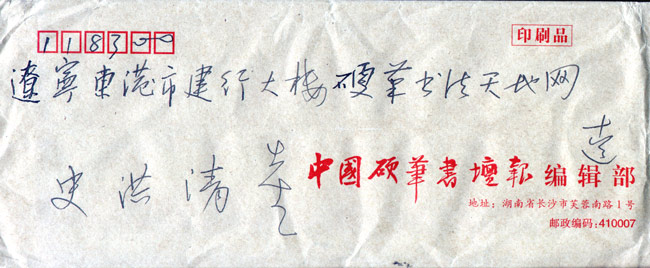 118300
印刷品
遼寧東港市建行大楼硬筆书法天地网
史洪清先生
中國硬筆書壇報编辑部
地址：湖南省长沙市芙蓉南路1号
邮政编码：410007